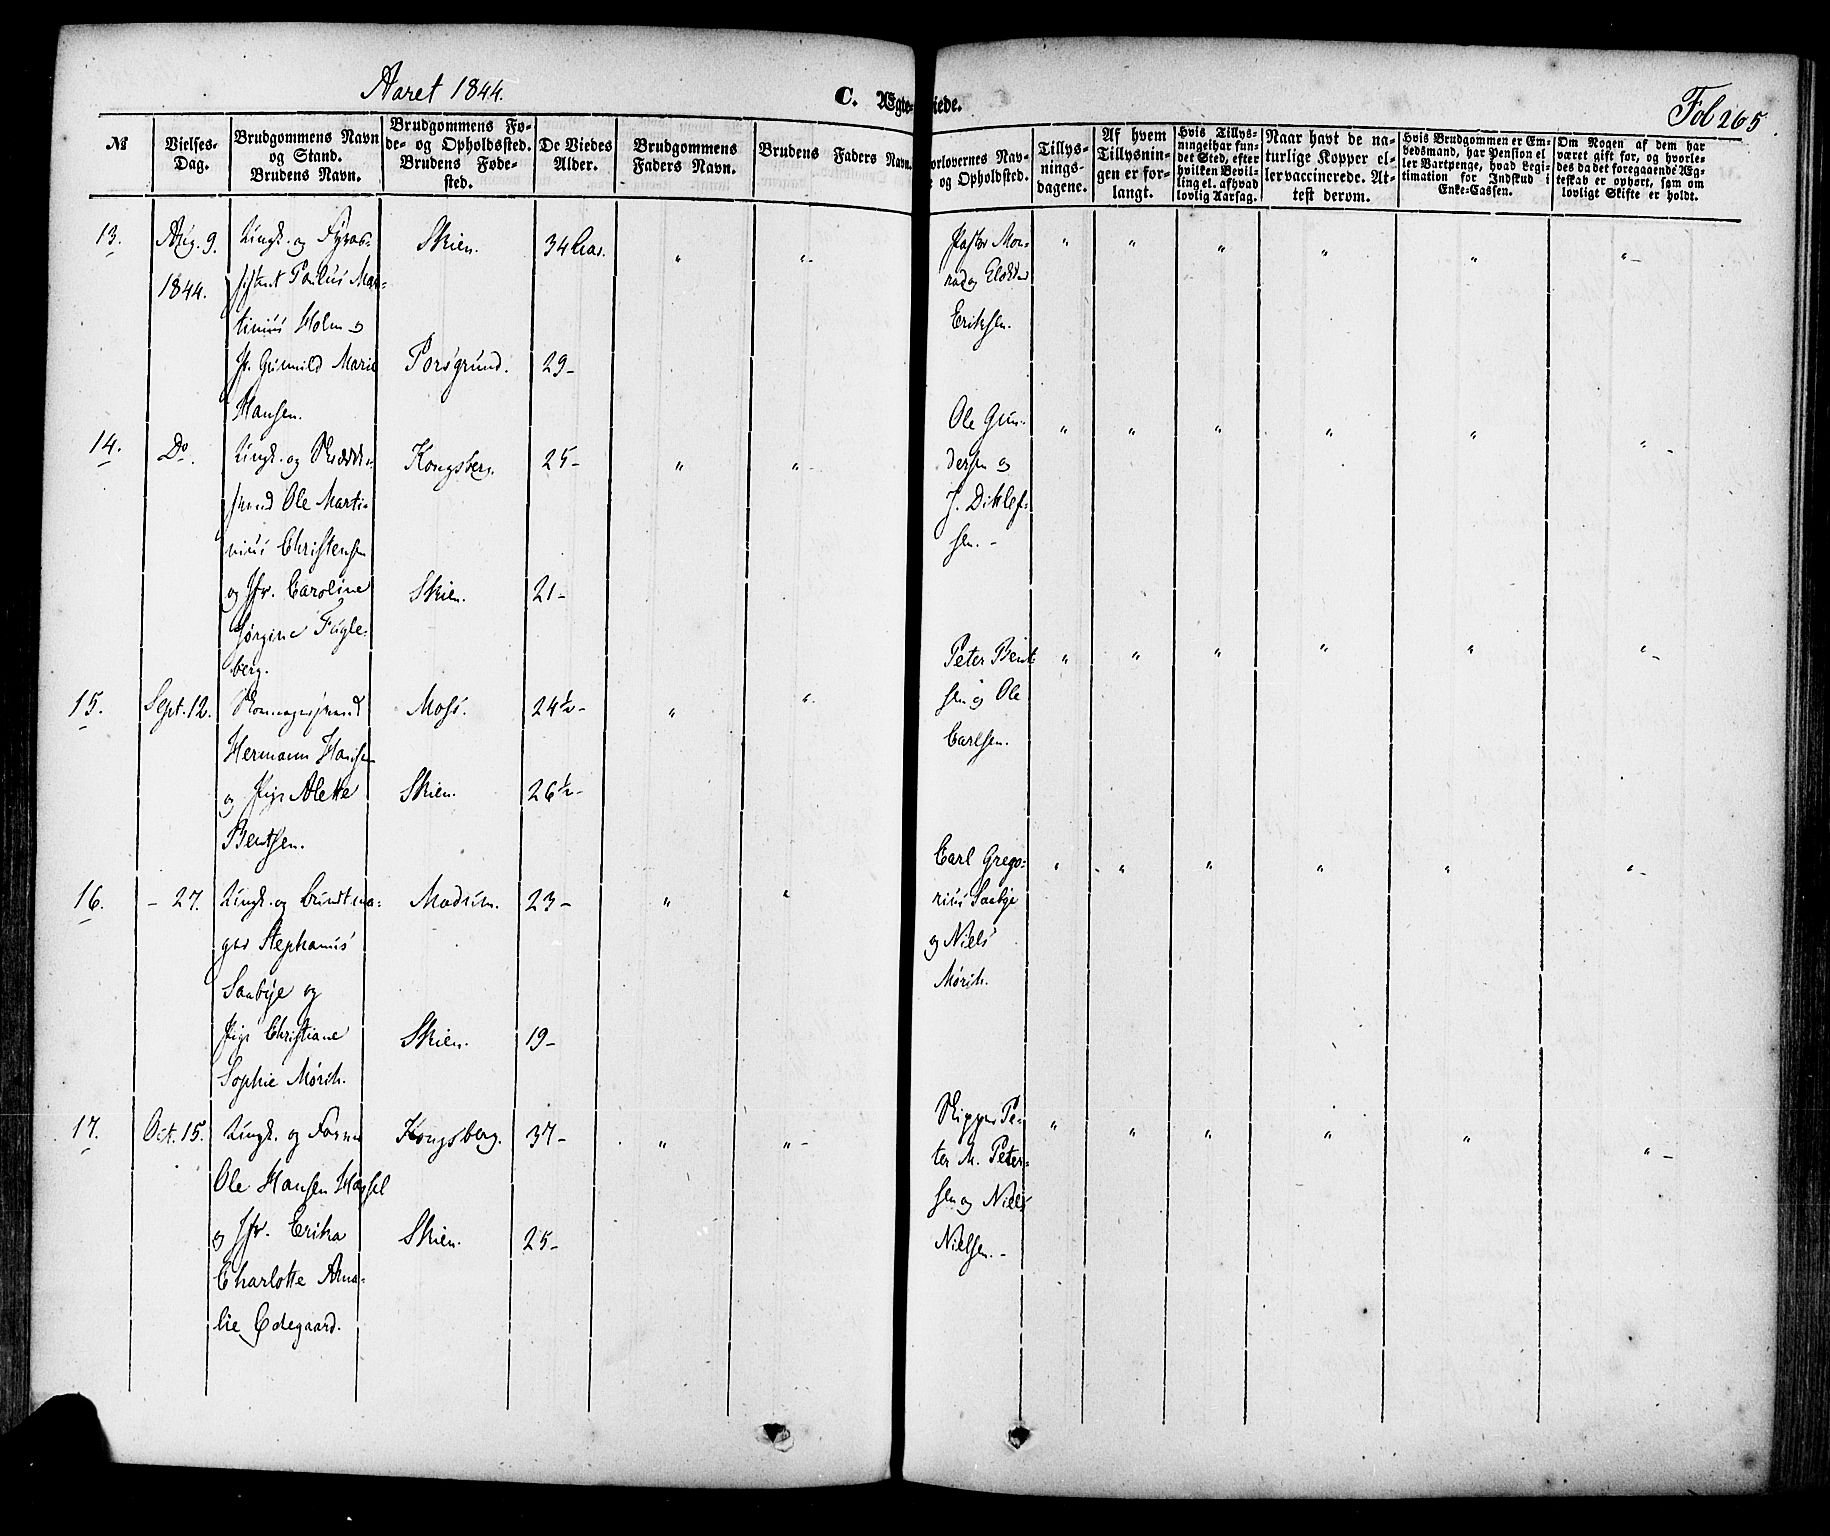 Aaret 1844.
C. Ægteviede.
Fol 265.
№
Vielses-
Dag.
Brudgommens Navn
og Stand.
Brudens Navn.
Brudgommens Fø-
de- og Opholdsted.
Brudens Føde-
sted.
De Viedes
Alder.
Brudgommens
Faders Navn.
Brudens Faders Navn.
Forlovernes Nav-
og Opholdsted.
Tillys-
nings-
dagene.
Af hvem
Tillysnin-
gen er for-
langt.
Hvis Tillys-
ningeihar fun-
det Sted, efter
hvilken Bevil-
ling el. afhvad
lovlig Aarsag.
Naar havt de na-
turlige Kopper el-
ler vaccinerede. At-
test derom.
Hvis Brudgommen er Em-
bedsmand, har Pension el
ler Vartpenge, hvad Legi-
timation for Indskud i
Enke-Cassen.
Om Nogen af dem har
været gift før, og hvorle-
des da det foregaaende Æg-
teskab er ophørt, som om
lovligt Skifte er holdt.
13.
Aug. 9.
1844.
Ungk. og Fyras-
sistent Paulus Mar-
tinius Holm og
Jf. Gunnild Marie
Hansen.
Skien. 34 Aar.
Porsgrund. 29-
Pastor Mon-
rad og
Eriksen.
14.
Do.
Ungk. og Skrædder-
svend Ole Marti-
nius Christensen
og Jfr. Caroline
Jørgine Fugle-
berg.
Kongsberg. 25-
Skien. 21-
Ole Gun-
dersen og
J. Ditlef-
sen. -
15.
Sept. 12.
Skomagersvend
Hermann Hansen
og Pige Alette
Bentsen.
Moss. 24½-
Skien. 26½-
Peter Bent-
sen og Ole
Carlsen.
16.
- 27.
Ungk. og Buntma-
ger Stephanus
Saabye og
Pige Christiane
Sophie Mørch.
Modum. 23-
Skien. 19-
Carl Grego-
rius Saabye
og Niels
Mørch.
17.
Oct. 15.
Ungk. og
Ole Hansen Hassel
og Jfr. Erika
Charlotte Ama-
lie Ødegaard.
Kongsberg. 37-
Skien. 25-
Skipper Pe-
ter M. Peter-
sen og Niels
Nielsen. -